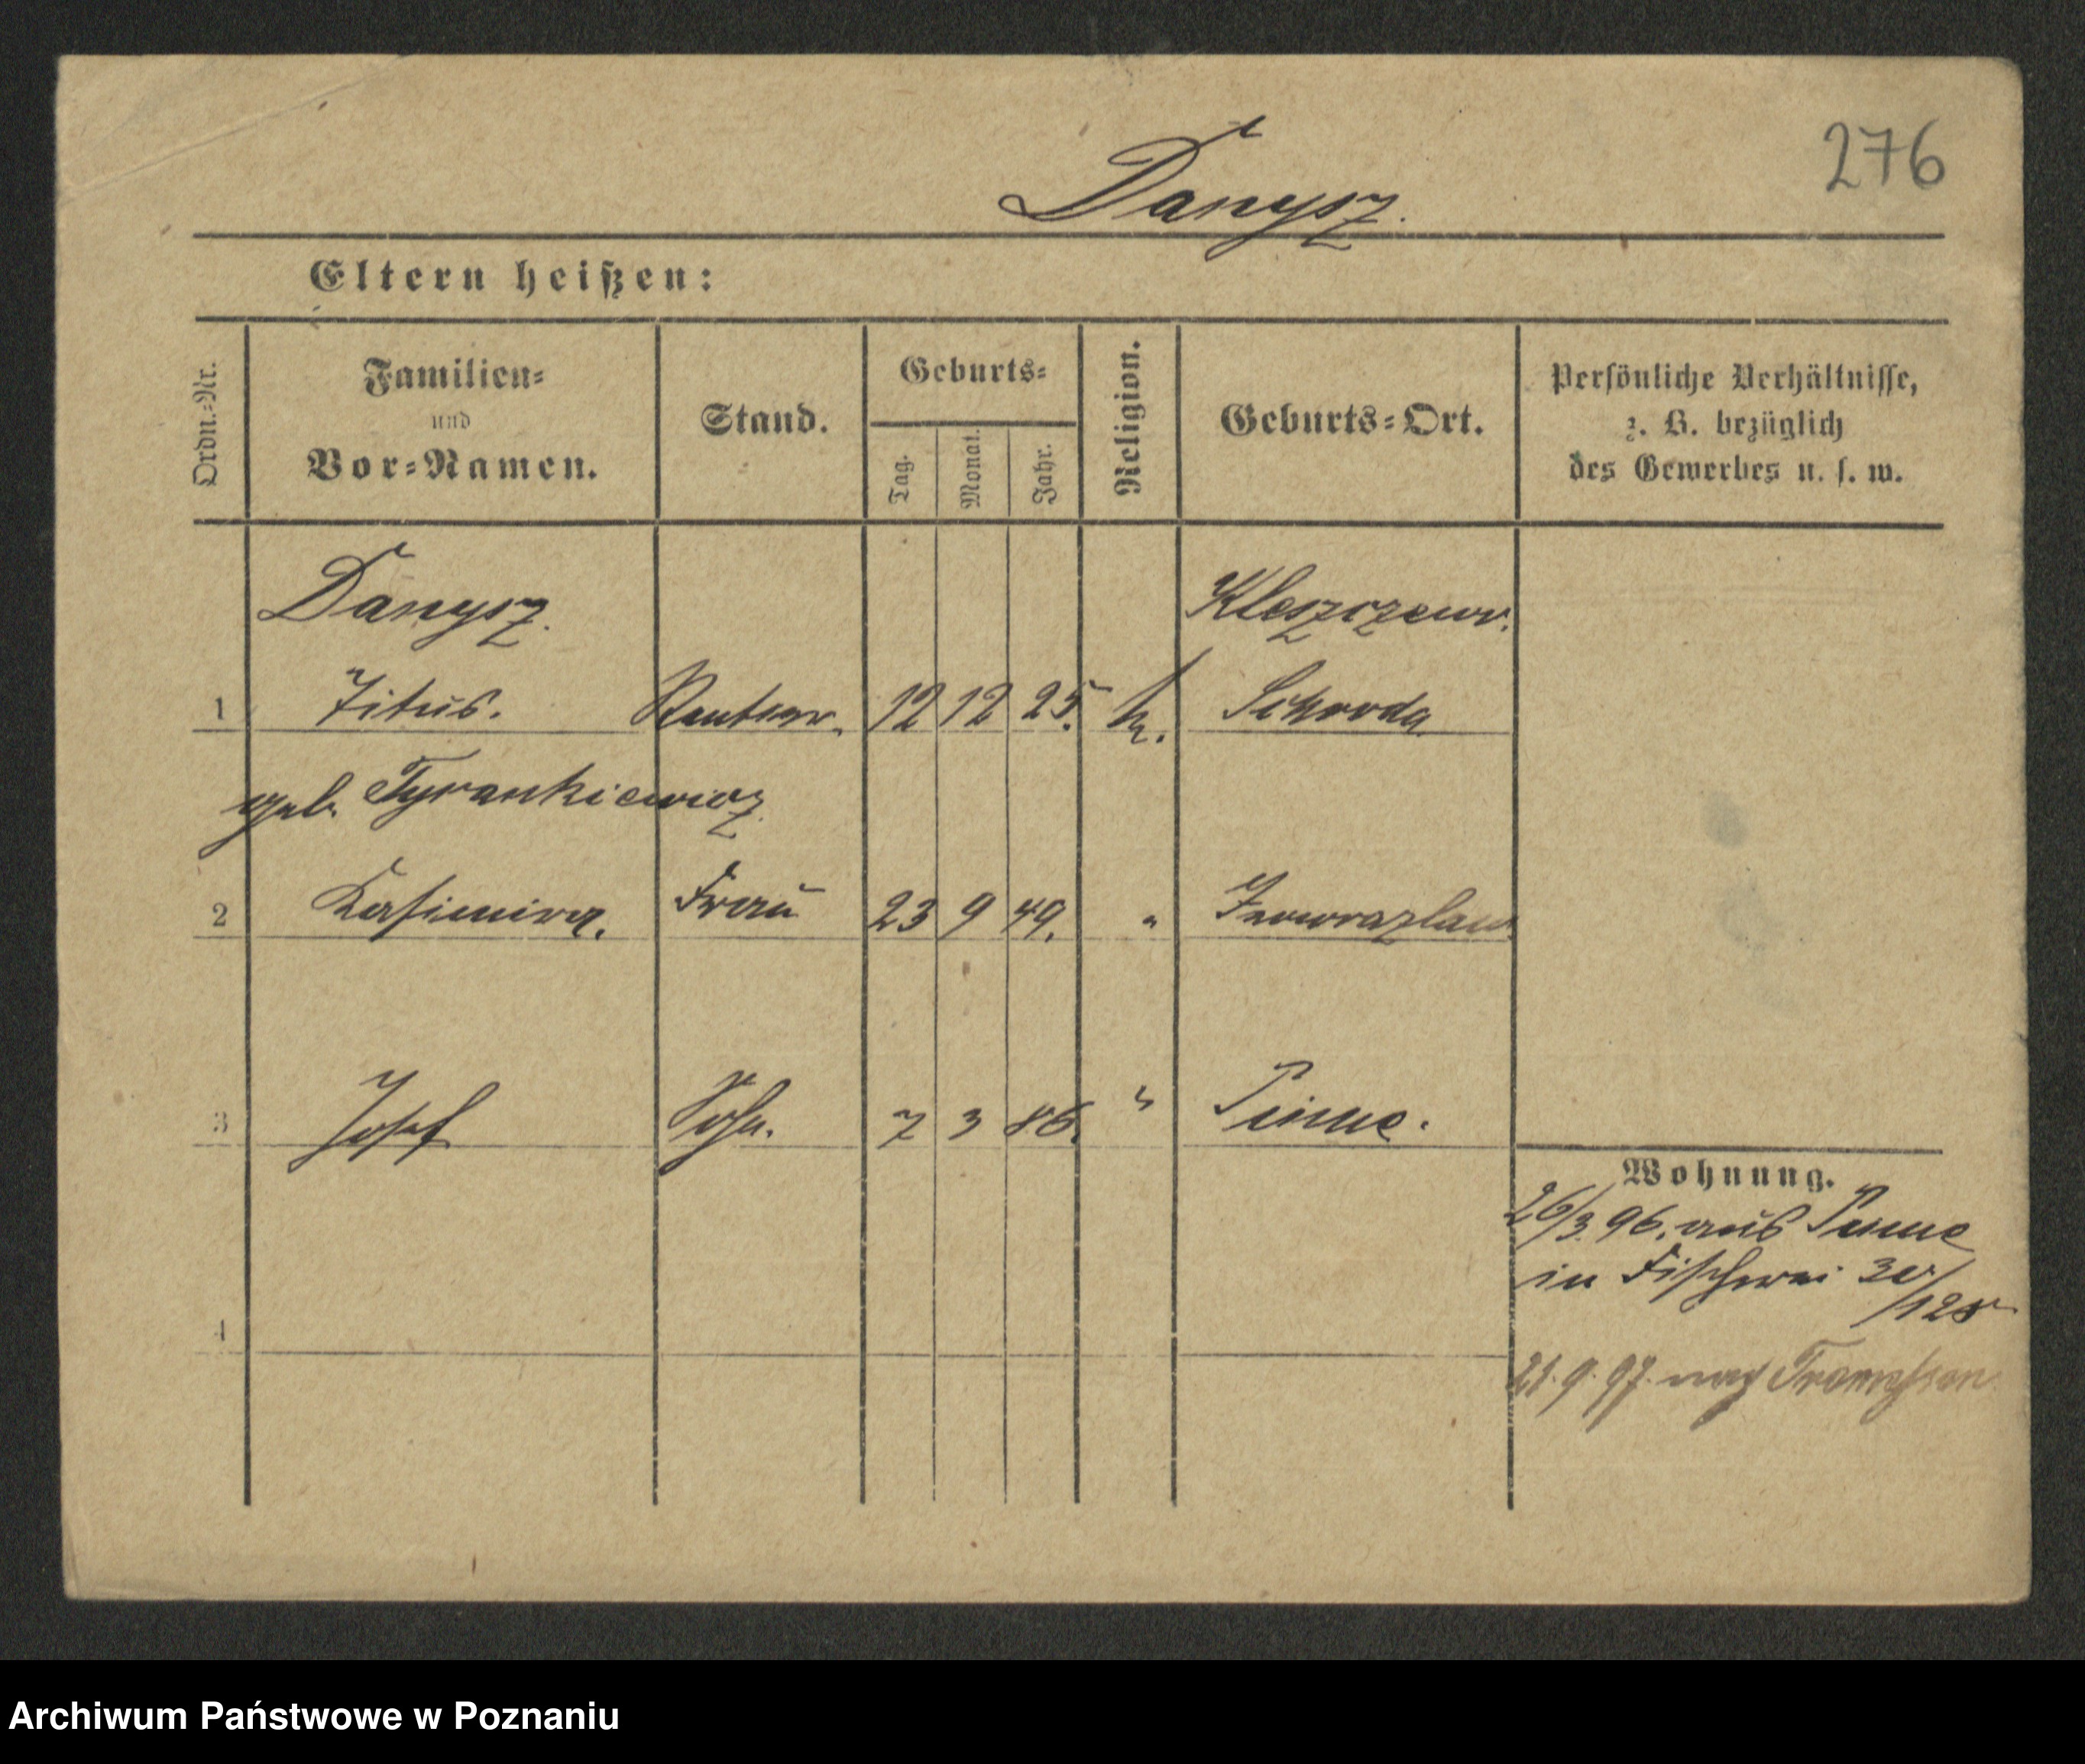 276
Danysz.
Eltern heißen:
Ordn.-Nr.
Familien-
und
Vor-Namen.
Stand.
Geburts-
Tag.
Monat.
Jahr.
Religion.
Geburts-Ort.
Persönliche Verhältnisse,
z. B. bezüglich
des Gewerbes u. s. w.
Danysz. Kleszczewo.
1 Titus. Rentier. 12 12 25. k. Schroda
geb. Tyrankiewicz
2 Kasimira. Frau 23 9 49. " Inowrazlaw
3 Josef Sohn. 7 3 86. " Pinne.
Wohnung.
26/3. 96. aus Pinne
in Fischerei
4
21. 9. 97. nach
Archiwum Państwowe w Poznaniu